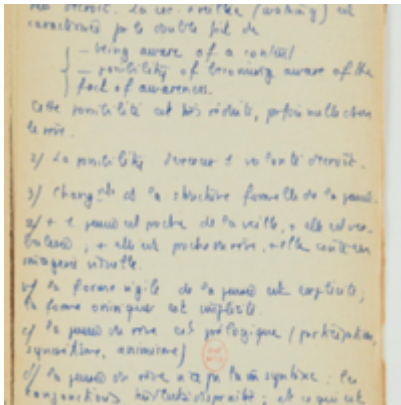 décroit. La cs. éveillée (waking) est
caractérisée par le double fait de
— being aware of a content
— possibility of becoming aware of the
fact of awareness.
Cette possibilité est très réduite, parfois nulle chez
le rêve.
2/ La possibilité d'exercer 1 volonté décroit.
3/ Chang^ts de la structure formelle de la pensée.
a/ + 1 pensée est proche de la veille, + elle est ver-
balisée ; + elle est proche du rêve, + elle contient
imagerie visuelle.
b/ la forme vigile de la pensée est explicite,
la forme onirique est implicite.
c/ la pensée du rêve est prélogique (participation,
syncrétisme, animisme)
d/ la pensée du rêve n'a pas la m syntaxe : les
conjonctions disparaît ; et ce qui est